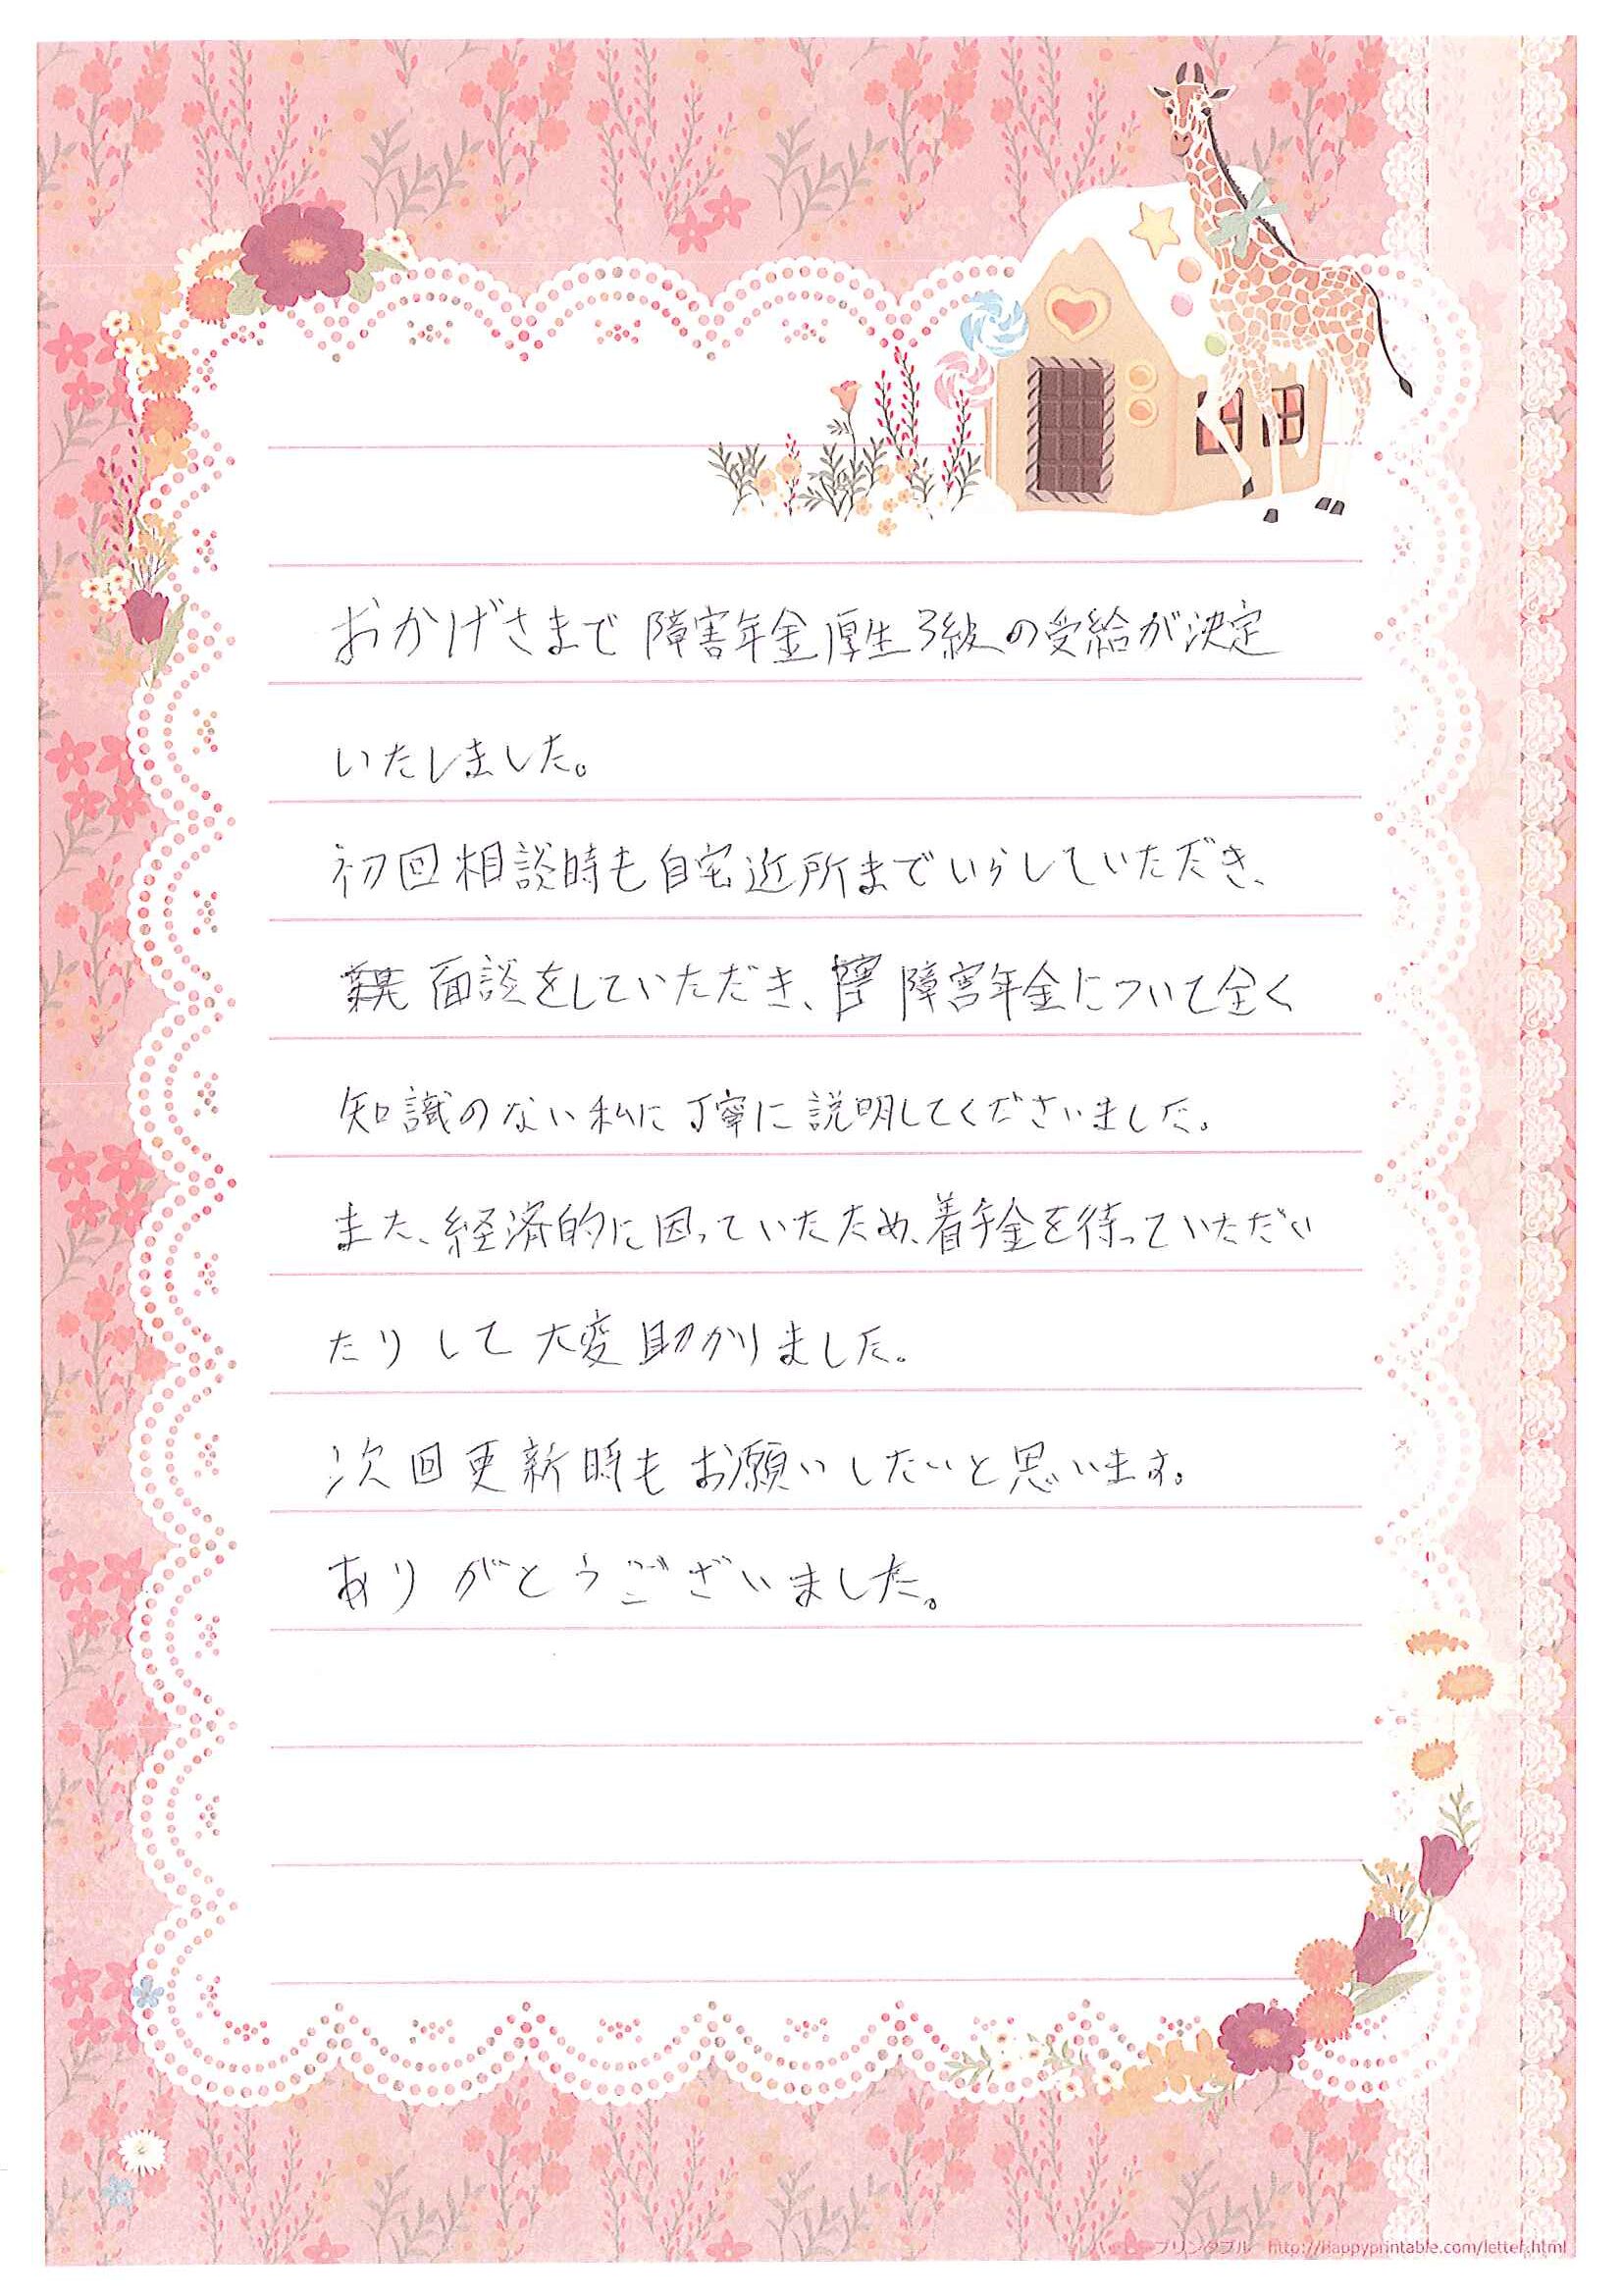 おかげさまで障害年金厚生3級の受給が決定
いたしました。
初回相談時も自宅近所までいらしていただき、
面談をしていただき、障害年金について全く
知識のない私に丁寧に説明してくださいました。
また、経済的に困っていたため、着手金を待っていただい
たりして大変助かりました。
次回更新時もお願いしたいと思います。
ありがとうございました。
ハッピープリンタブル http://happyprintable.com/letter.html